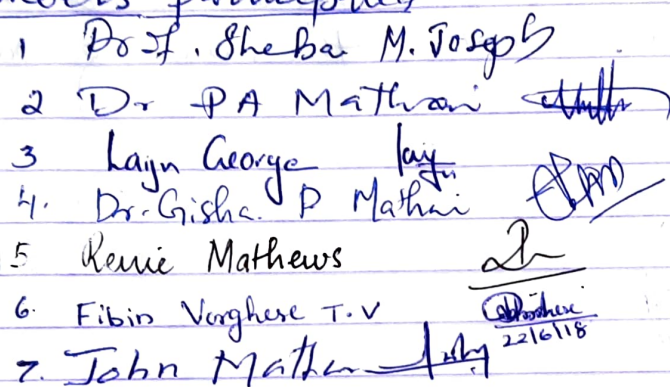 1 Prof. Sheba M. Joseph
2 Dr PA Mathai
3 Layn George
4. Dr. Gisha. P Mathai
5 Renie Mathews
6. Fibin Varghese T.V
22/6/18
7. John Mathew